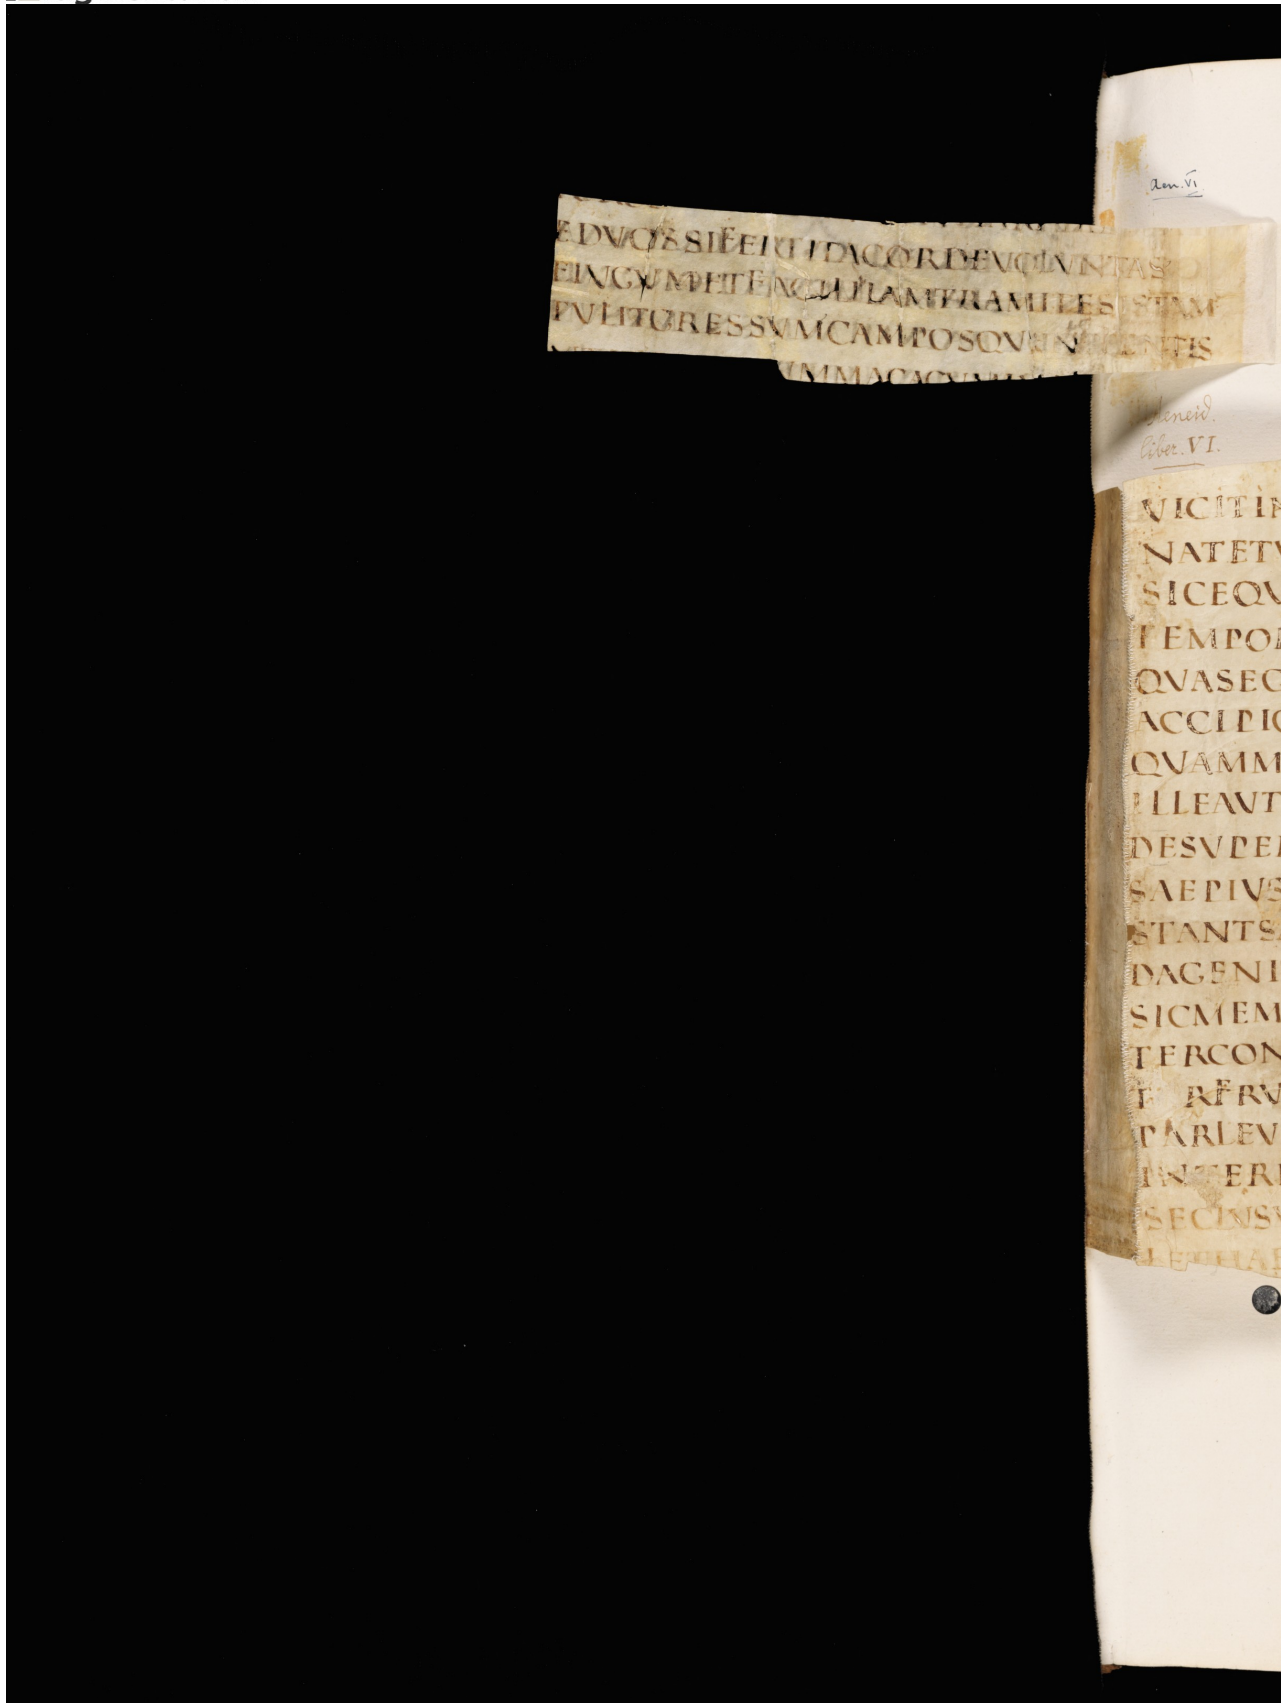 Aen. VI
EDVOSSIFERTITACORDEVOLVNTAS
EIVGVMETFACILIIAMTRAMITESISTAM
TVLITGRESSVMCAMPOSQVENITENTIS
MMACACVM
Aeneid.
liber. VI.
VICITI
NATETV
SICEQV
TEMPO
QVASEC
ACCIPIO
QVAMM
ILLEAVT
DESVPE
SAEPIVS
STANTSA
DAGENI
SICMEM
TERCON
T RFRV
PARLEV
INTER
SECLVS
LETHAE